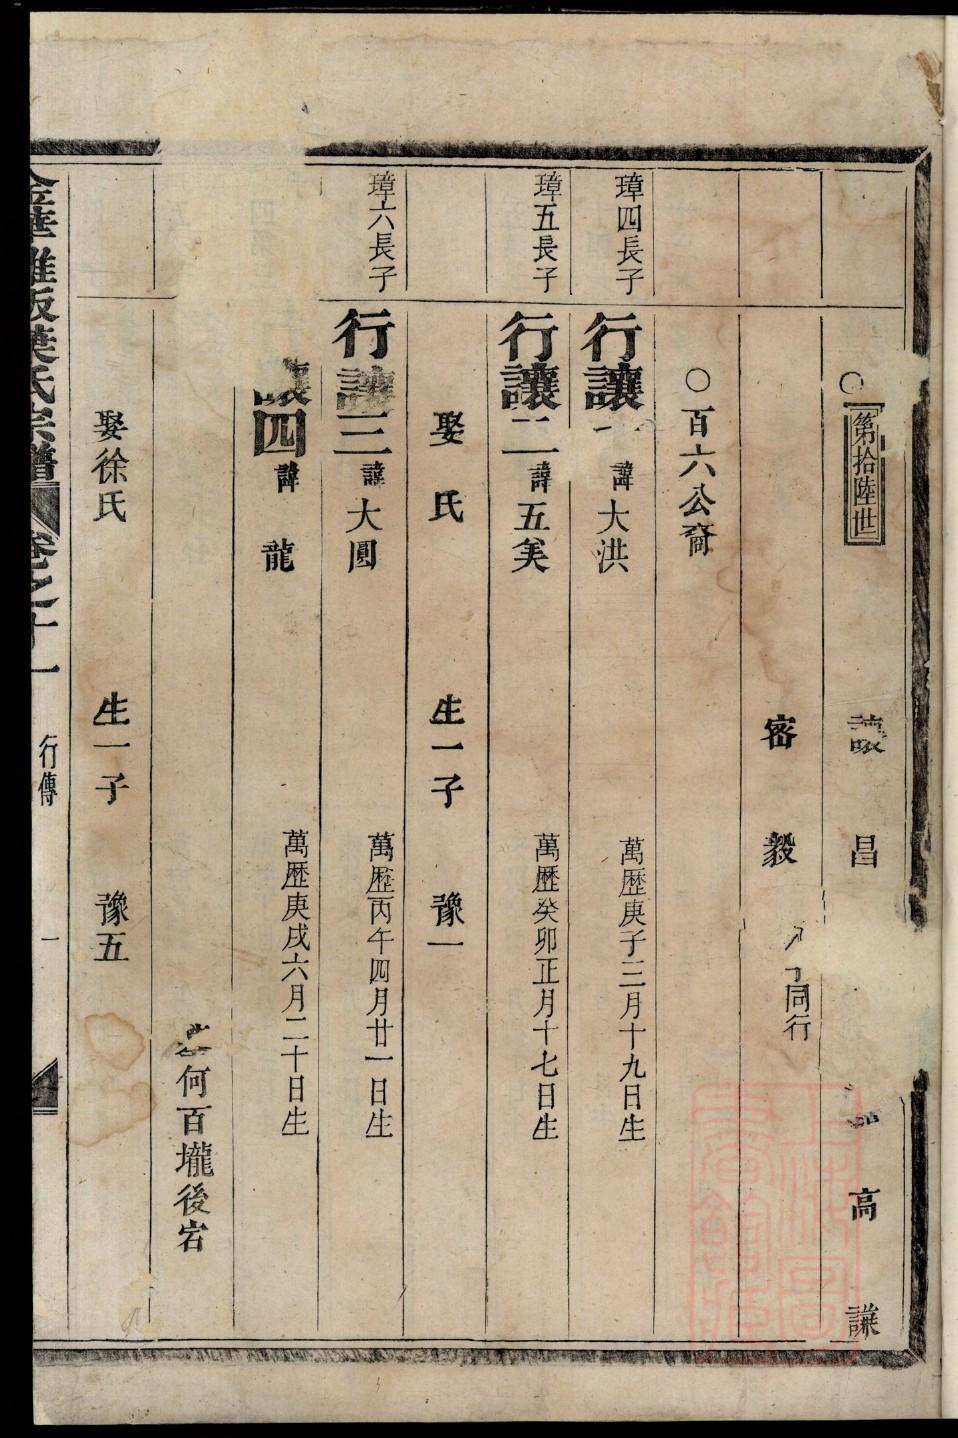 ○第拾陸世 讓 昌 高 謙
密 毅 同行
○百六公裔
璋四長子 行讓一 諱大洪 萬歷庚子三月十九日生
璋五長子 行讓二 諱五美 萬歷癸卯正月十七日生
娶 氏 生一子 豫一
璋六長子 行讓三 諱大圓 萬歷丙午四月廿一日生
讓四 諱龍 萬歷庚戌六月二十日生
何百壠後宕
娶徐氏 生一子 豫五
金華雅畈葉氏宗譜 卷之十一 行傳 一